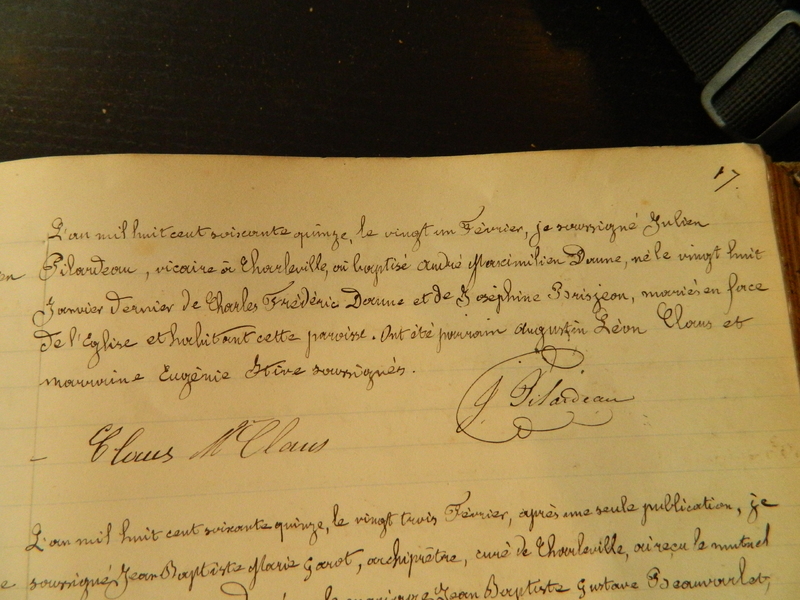 17.
L'an mil huit cent soixante quinze, le vingt un Février, je soussigné Julien
Pilardeau, vicaire à Charleville, ai baptisé André Maximilien Daune, né le vingt huit
Janvier dernier de Charles Frédéric Daune et de Joséphine Brisjeon, mariés en face
de l'Eglise et habitant cette paroisse. Ont été parrain Augustin Léon Claus et
marraine Eugénie Stive soussignés.
J. Pilardeau
Claus Me Claus
L'an mil huit cent soixante quinze, le vingt trois Février, après une seule publication, je
soussigné Jean Baptiste Marie Garot, archiprêtre, curé de Charleville, ai reçu le mutuel
Jean Baptiste Gustave Beauvarlet,